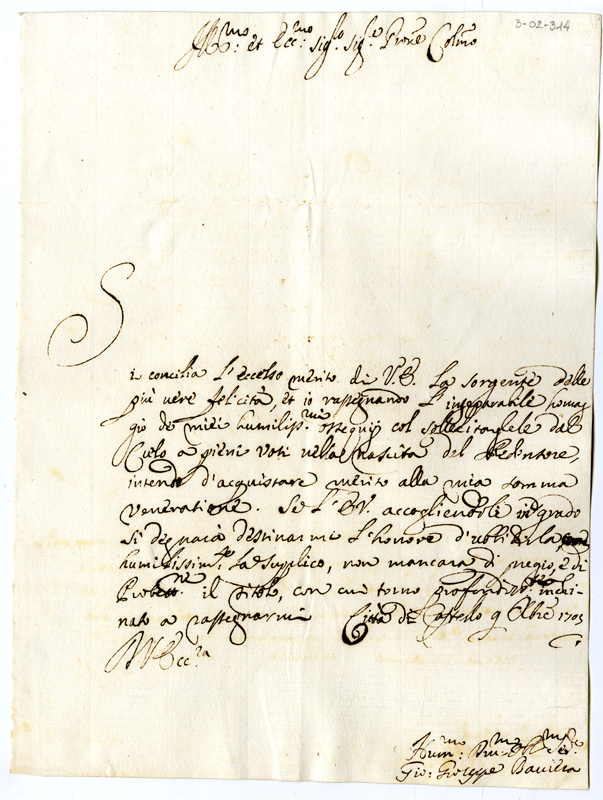 3-02-314
Ill:mo et Ecc:mo Sig:re Sig:re Prone Colmo
Si concilia l'eccelso merito di V.E. la sorgente delle
più vere felicità, et io rassegnando l'inseparabile homag
gio de miei humiliss:mi ossequij col sollecitargliele dal
Cielo a pieni voti nella nascita del Redentore,
intendo d'acquistare merito alla mia somma
veneratione. Se l'E.V. accogliendoli in grado
si degnarà destinarmi l'honore d'ubbidirla,
humilissim:te la supplico, non mancarà di pregio, e di
il titolo, con cui torno profondiss:te inchi-
nato a rassegnarmi Città di Castello 9 Xbre 1703
D V Ecc:za
Hum:mo Dev:mo Obb:mo Ser:e
Gio: Gioseppe Baviera